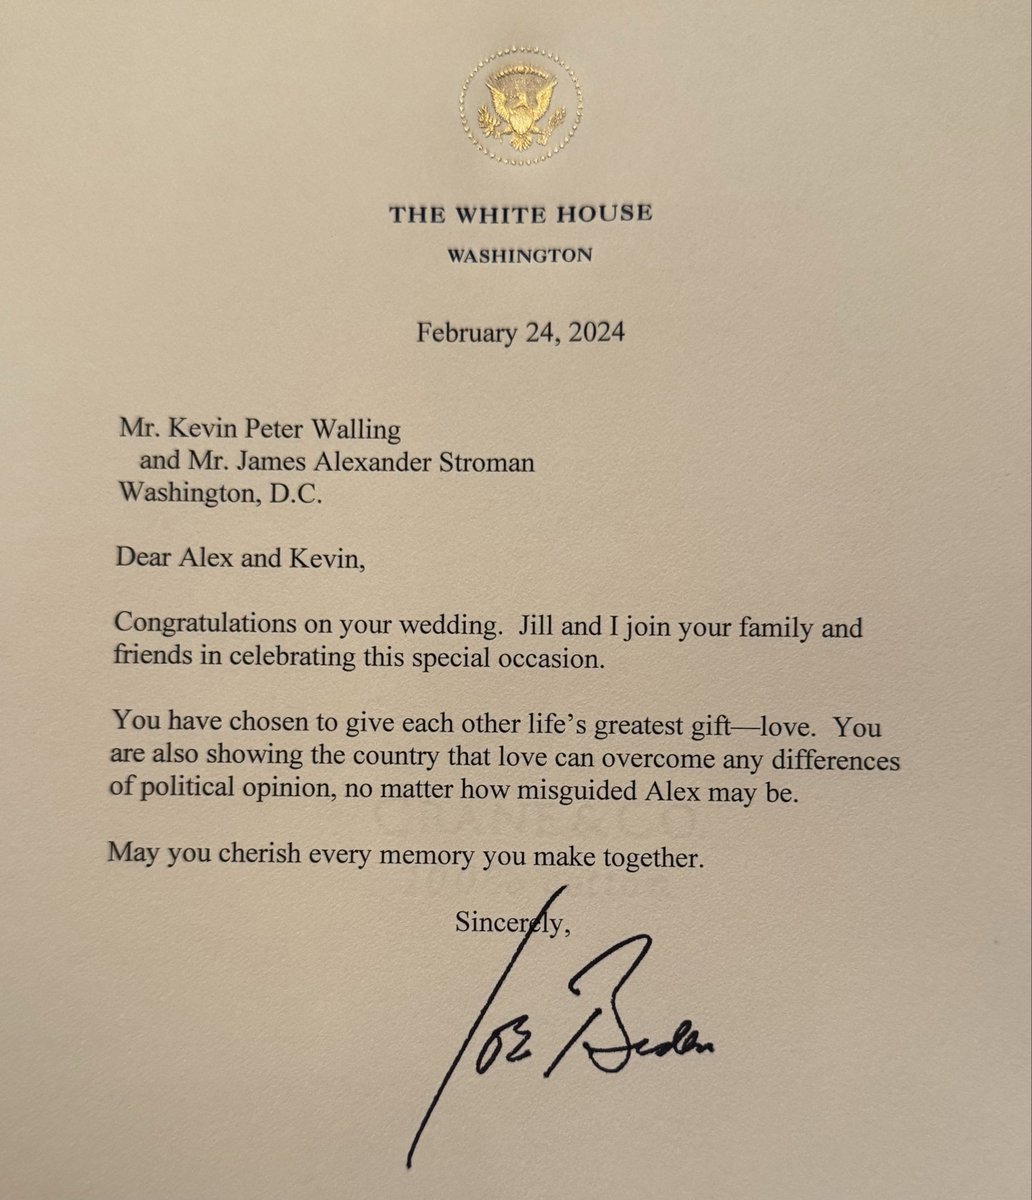 THE WHITE HOUSE
WASHINGTON
February 24, 2024
Mr. Kevin Peter Walling
and Mr. James Alexander Stroman
Washington, D.C.
Dear Alex and Kevin,
Congratulations on your wedding.  Jill and I join your family and
friends in celebrating this special occasion.
You have chosen to give each other life’s greatest gift—love.  You
are also showing the country that love can overcome any differences
of political opinion, no matter how misguided Alex may be.
May you cherish every memory you make together.
Sincerely,
Joe Biden